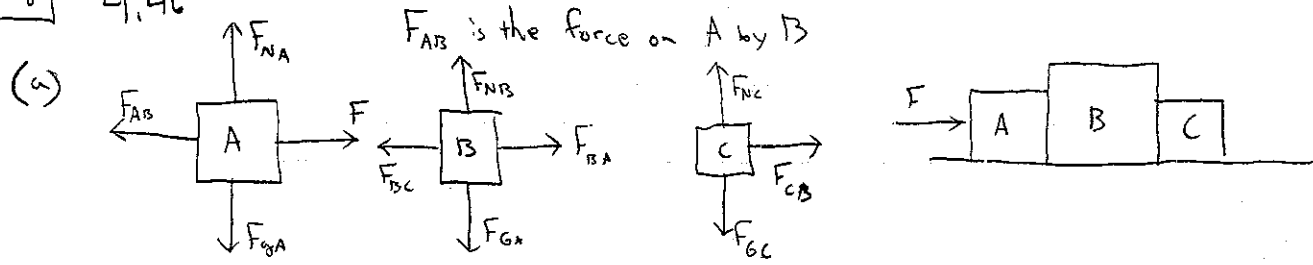 4.46
F_AB is the force on A by B
(a)
F_NA
F_AB
A
F
F_gA
F_NB
F_BC
B
F_BA
F_NC
C
F_CB
F_GC
F
A
B
C